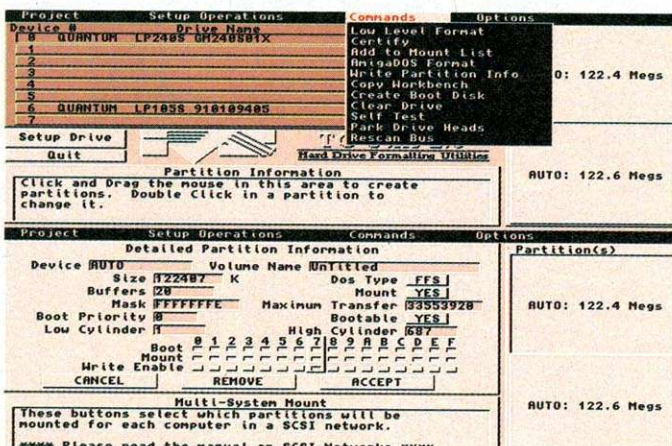 Project Setup Operations Commands Options
Device # Drive Name
0 QUANTUM LP240S GM240S01X
1
2
3
4
5
6 QUANTUM LP105S 910109405
7
Low Level Format
Certify
Add to Mount List
AmigaDOS Format
Write Partition Info
Copy Workbench
Create Boot Disk
Clear Drive
Self Test
Park Drive Heads
Rescan Bus
O: 122.4 Megs
Setup Drive
Quit
Hard Drive Formatting Utilities
AUTO: 122.6 Megs
Partition Information
Click and Drag the mouse in this area to create
partitions. Double Click in a partition to
change it.
Project Setup Operations Commands Options
Detailed Partition Information
Partition(s)
Device AUTO Volume Name UnTitled
Size 122407 K Dos Type FFS
Buffers 20 Mount YES
Mask FFFFFFFE Maximum Transfer 33553920
Boot Priority 0 Bootable YES
Low Cylinder 1 High Cylinder 687
0 1 2 3 4 5 6 7 8 9 A B C D E F
Boot
Mount
Write Enable
CANCEL REMOVE ACCEPT
AUTO: 122.4 Megs
Multi-System Mount
These buttons select which partitions will be
mounted for each computer in a SCSI network.
**** Please read the manual on SCSI Networks ****
AUTO: 122.6 Megs